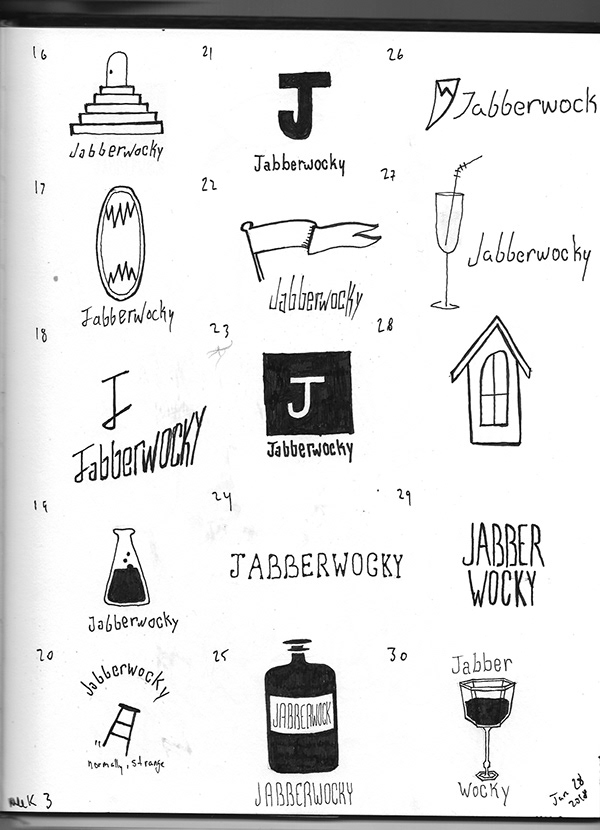 16
Jabberwocky
21
J
Jabberwocky
26
Jabberwock
17
Jabberwocky
22
Jabberwocky
27
Jabberwocky
18
J
Jabberwocky
23
J
Jabberwocky
28
19
Jabberwocky
24
JABBERWOCKY
29
JABBER
WOCKY
20
Jabberwocky
normally, strange
25
JABBERWOCK
JABBERWOCKY
30
Jabber
Wocky
week 3
Jan 28
2018